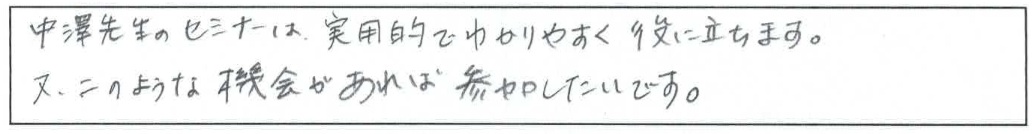 中澤先生のセミナーは、実用的でわかりやすく役に立ちます。
又、このような機会があれば参加したいです。